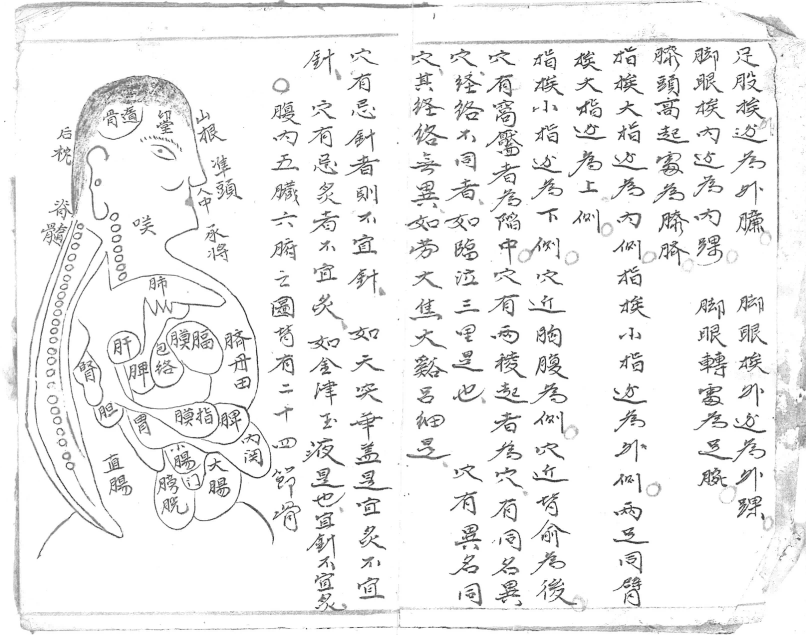 足股挨边為外臁 脚眼挨外边為外踝
脚眼挨内边為内踝 脚眼轉灣為足腕
膝頭高起處為膝臍
指挨大指边為内側指挨小指边為外側兩足同臂
挨大指边為上側
指挨小指边為下側穴近胸腹為側穴近背俞為後
穴有窩靨者為陷中穴有兩稜起者為穴有同名異
穴経絡不同者如臨泣三里是也 穴有異名同
穴其経絡無異如労大焦大谿呂细是
穴有忌針者則不宜針 如天突華盖是宜灸不宜
針 穴有忌灸者不宜灸 如金津玉液是也宜針不宜灸
○腹内五臓六腑之圖背有二十四節骨
山根
準頭
人中
承将
后枕
脊髓
咲
肺
肝
脾
包絡
膜膈
臍丹田
腎
胆
胃
膜指
脾
内関
小腸
大腸
膀胱
直腸